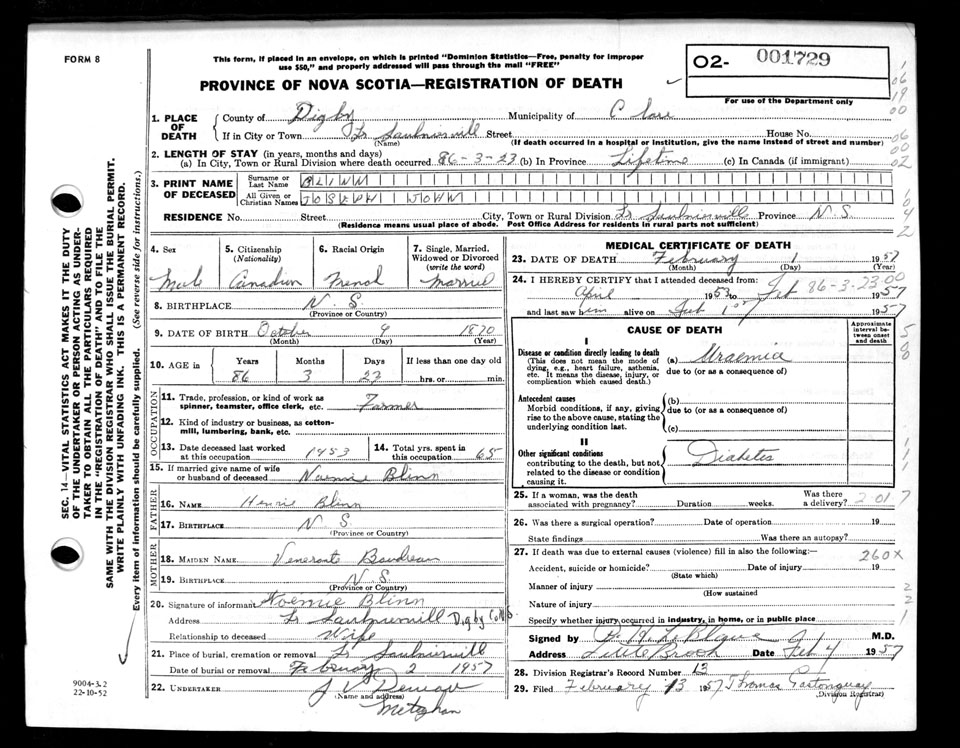 FORM 8
This form, if placed in an envelope, on which is printed "Dominion Statistics—Free, penalty for improper
use $50," and properly addressed will pass through the mail "FREE"
PROVINCE OF NOVA SCOTIA—REGISTRATION OF DEATH
O2- 001729
For use of the Department only
SEC. 14—VITAL STATISTICS ACT MAKES IT THE DUTY
OF THE UNDERTAKER OR PERSON ACTING AS UNDER-
TAKER TO OBTAIN ALL THE PARTICULARS REQUIRED
IN THE "REGISTRATION OF DEATH" AND TO FILE THE
SAME WITH THE DIVISION REGISTRAR WHO SHALL ISSUE THE BURIAL PERMIT.
WRITE PLAINLY WITH UNFADING INK. THIS IS A PERMANENT RECORD.
Every item of information should be carefully supplied. (See reverse side for instructions.)
1. PLACE OF DEATH County of Digby Municipality of Clare
If in City or Town Lr Saulnierville Street House No.
(Name) (If death occurred in a hospital or institution, give the name instead of street and number)
2. LENGTH OF STAY (in years, months and days)
(a) In City, Town or Rural Division where death occurred 86-3-23 (b) In Province Lifetime (c) In Canada (if immigrant)
3. PRINT NAME OF DECEASED Surname or Last Name BLINN
All Given or Christian Names JOSEPH JOHN
RESIDENCE No. Street City, Town or Rural Division Lr Saulnierville Province N.S.
(Residence means usual place of abode. Post Office Address for residents in rural parts not sufficient)
4. Sex Male
5. Citizenship (Nationality) Canadian
6. Racial Origin French
7. Single, Married, Widowed or Divorced (write the word) Married
8. BIRTHPLACE N.S.
(Province or Country)
9. DATE OF BIRTH October 9 1870
(Month) (Day) (Year)
10. AGE in Years 86 Months 3 Days 23 If less than one day old hrs. or min.
OCCUPATION
11. Trade, profession, or kind of work as spinner, teamster, office clerk, etc. Farmer
12. Kind of industry or business, as cotton-mill, lumbering, bank, etc.
13. Date deceased last worked at this occupation 1953
14. Total yrs. spent in this occupation 65
15. If married give name of wife or husband of deceased Noemie Blinn
FATHER
16. NAME Henrie Blinn
17. BIRTHPLACE N.S.
(Province or Country)
MOTHER
18. MAIDEN NAME Venerante Boudreau
19. BIRTHPLACE N.S.
(Province or Country)
20. Signature of informant Noemie Blinn
Address Lr Saulnierville Digby Co N.S.
Relationship to deceased Wife
21. Place of burial, cremation or removal Lr Saulnierville
Date of burial or removal February 2 1957
22. UNDERTAKER
(Name and address)
Meteghan
9004-3.2
22-10-52
MEDICAL CERTIFICATE OF DEATH
23. DATE OF DEATH February 1 1957
(Month) (Day) (Year)
24. I HEREBY CERTIFY that I attended deceased from:
86-3-23
April 1953 to Feb 1957
and last saw him alive on Feb 1 1957
CAUSE OF DEATH
Approximate interval between onset and death
I
Disease or condition directly leading to death
(This does not mean the mode of dying, e.g., heart failure, asthenia, etc. It means the disease, injury, or complication which caused death.)
(a) Uraemia
due to (or as a consequence of)
Antecedent causes
Morbid conditions, if any, giving rise to the above cause, stating the underlying condition last.
(b)
due to (or as a consequence of)
(c)
II
Other significant conditions
contributing to the death, but not related to the disease or condition causing it.
Diabetes
25. If a woman, was the death associated with pregnancy? Duration weeks. Was there a delivery?
26. Was there a surgical operation? Date of operation 19
State findings Was there an autopsy?
27. If death was due to external causes (violence) fill in also the following:—
260X
Accident, suicide or homicide? Date of injury 19
(State which)
Manner of injury
(How sustained
Nature of injury
Specify whether injury occurred in industry, in home, or in public place
Signed by M.D.
Address Little Brook Date Feb 4 1957
28. Division Registrar's Record Number 13
29. Filed February 13 1957 Thomas Castonguay
(Division Registrar)